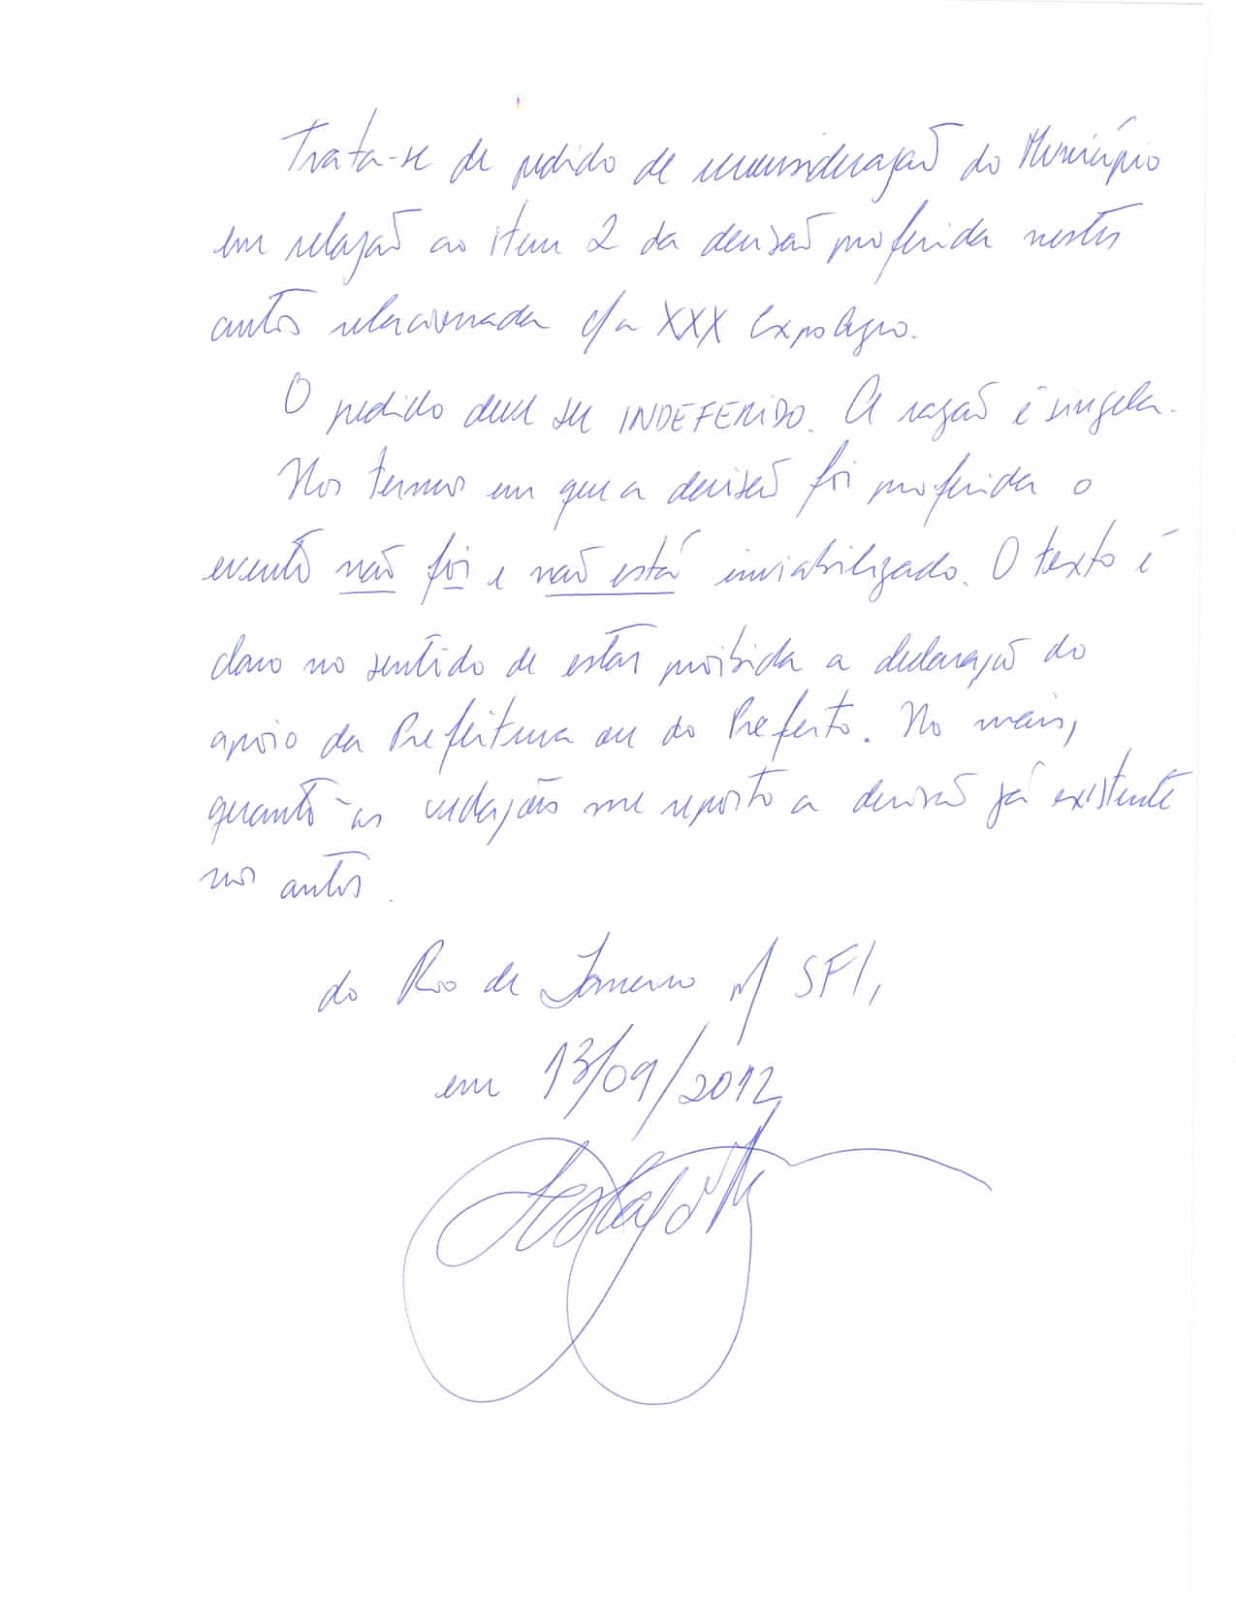 Trata-se de pedido de reconsideração do Município
em relação ao item 2 da decisão proferida nestes
autos relacionada c/a XXX ExpoAgro.
O pedido deve ser INDEFERIDO. A razão é singela.
Nos termos em que a decisão foi proferida o
evento não foi e não está inviabilizado. O texto é
claro no sentido de estar proibida a declaração do
apoio da Prefeitura ou do Prefeito. No mais,
quanto às vedações me reporto a decisão já existente
nos autos.
do Rio de Janeiro p/ SFI,
em 13/09/2012